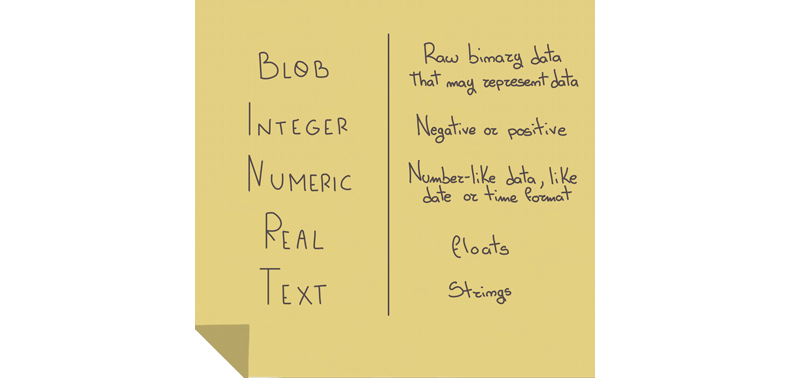 BLOB
Raw binary data
that may represent data
INTEGER
Negative or positive
NUMERIC
Number-like data, like
date or time format
REAL
floats
TEXT
Strings